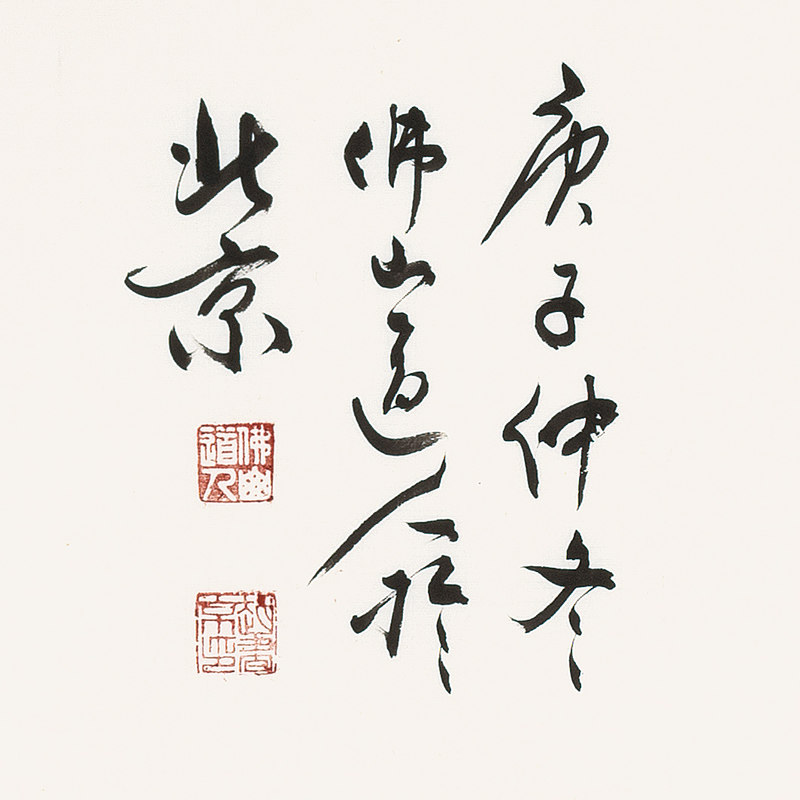 庚子仲冬
佛山道人於
北京
佛山道人